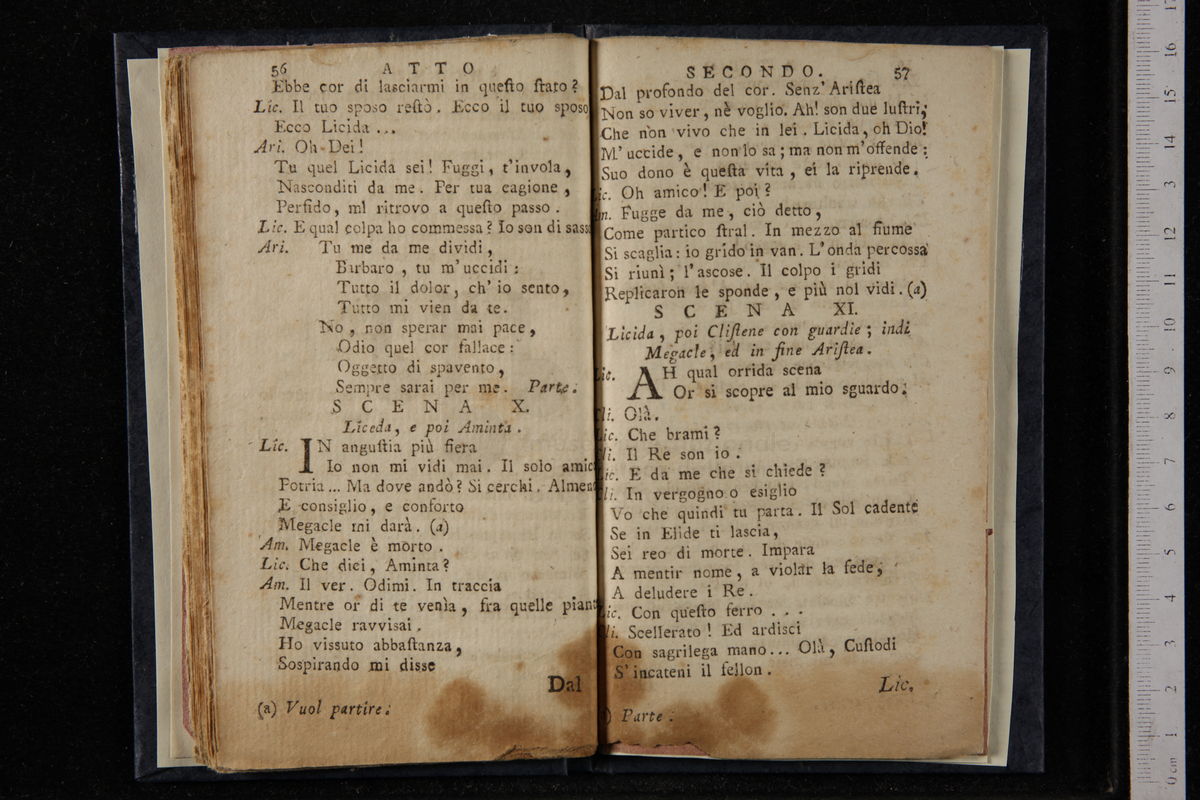 56 ATTO
Ebbe cor di lasciarmi in queſto ſtato?
Lic. Il tuo sposo reſtò. Ecco il tuo sposo
Ecco Licida ...
Ari. Oh Dei!
Tu quel Licida sei! Fuggi, t'invola,
Nasconditi da me. Per tua cagione,
Perfido, mi ritrovo a queſto passo.
Lic. E qual colpa ho commessa? Io son di sass
Ari. Tu me da me dividi,
Barbaro, tu m'uccidi:
Tutto il dolor, ch'io sento,
Tutto mi vien da te.
No, non sperar mai pace,
Odio quel cor fallace:
Oggetto di spavento,
Sempre sarai per me. Parte.
SCENA X.
Liceda, e poi Aminta.
Lic. IN anguſtia più fiera
Io non mi vidi mai. Il solo amic
Potria ... Ma dove andò? Si cerchi. Almen
E consiglio, e conforto
Megacle mi darà. (a)
Am. Megacle è morto.
Lic. Che dici, Aminta?
Am. Il ver. Odimi. In traccia
Mentre or di te venìa, fra quelle piant
Megacle ravvisai.
Ho vissuto abbaſtanza,
Sospirando mi disse
Dal
(a) Vuol partire.
SECONDO. 57
Dal profondo del cor. Senz' Ariſtea
Non so viver, nè voglio. Ah! son due luſtri,
Che non vivo che in lei. Licida, oh Dio!
M'uccide, e non lo sa; ma non m'offende:
Suo dono è queſta vita, ei la riprende.
ic. Oh amico! E poi?
m. Fugge da me, ciò detto,
Come partico ſtral. In mezzo al fiume
Si scaglia: io grido in van. L'onda percossa
Si riunì; l'ascose. Il colpo i gridi
Replicaron le sponde, e più nol vidi. (a)
SCENA XI.
Licida, poi Cliſtene con guardie; indi
Megacle, ed in fine Ariſtea.
ic. AH qual orrida scena
Or si scopre al mio sguardo.
li. Olà.
ic. Che brami?
li. Il Re son io.
ic. E da me che si chiede?
li. In vergogno o esiglio
Vo che quindi tu parta. Il Sol cadente
Se in Elide ti lascia,
Sei reo di morte. Impara
A mentir nome, a violar la fede,
A deludere i Re.
ic. Con queſto ferro ...
li. Scellerato! Ed ardisci
Con sagrilega mano... Olà, Cuſtodi
S'incateni il fellon.
Lic.
) Parte.
0 cm 1 2 3 4 5 6 7 8 9 10 11 12 13 14 15 16 17